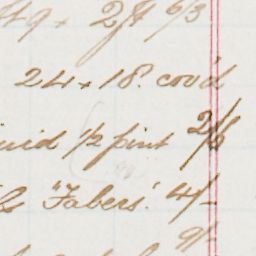 49 × 2/8 6/3
24 × 18. cov'd
uid 1/2 pint 2/6
"Fabers". 4/-
9/-